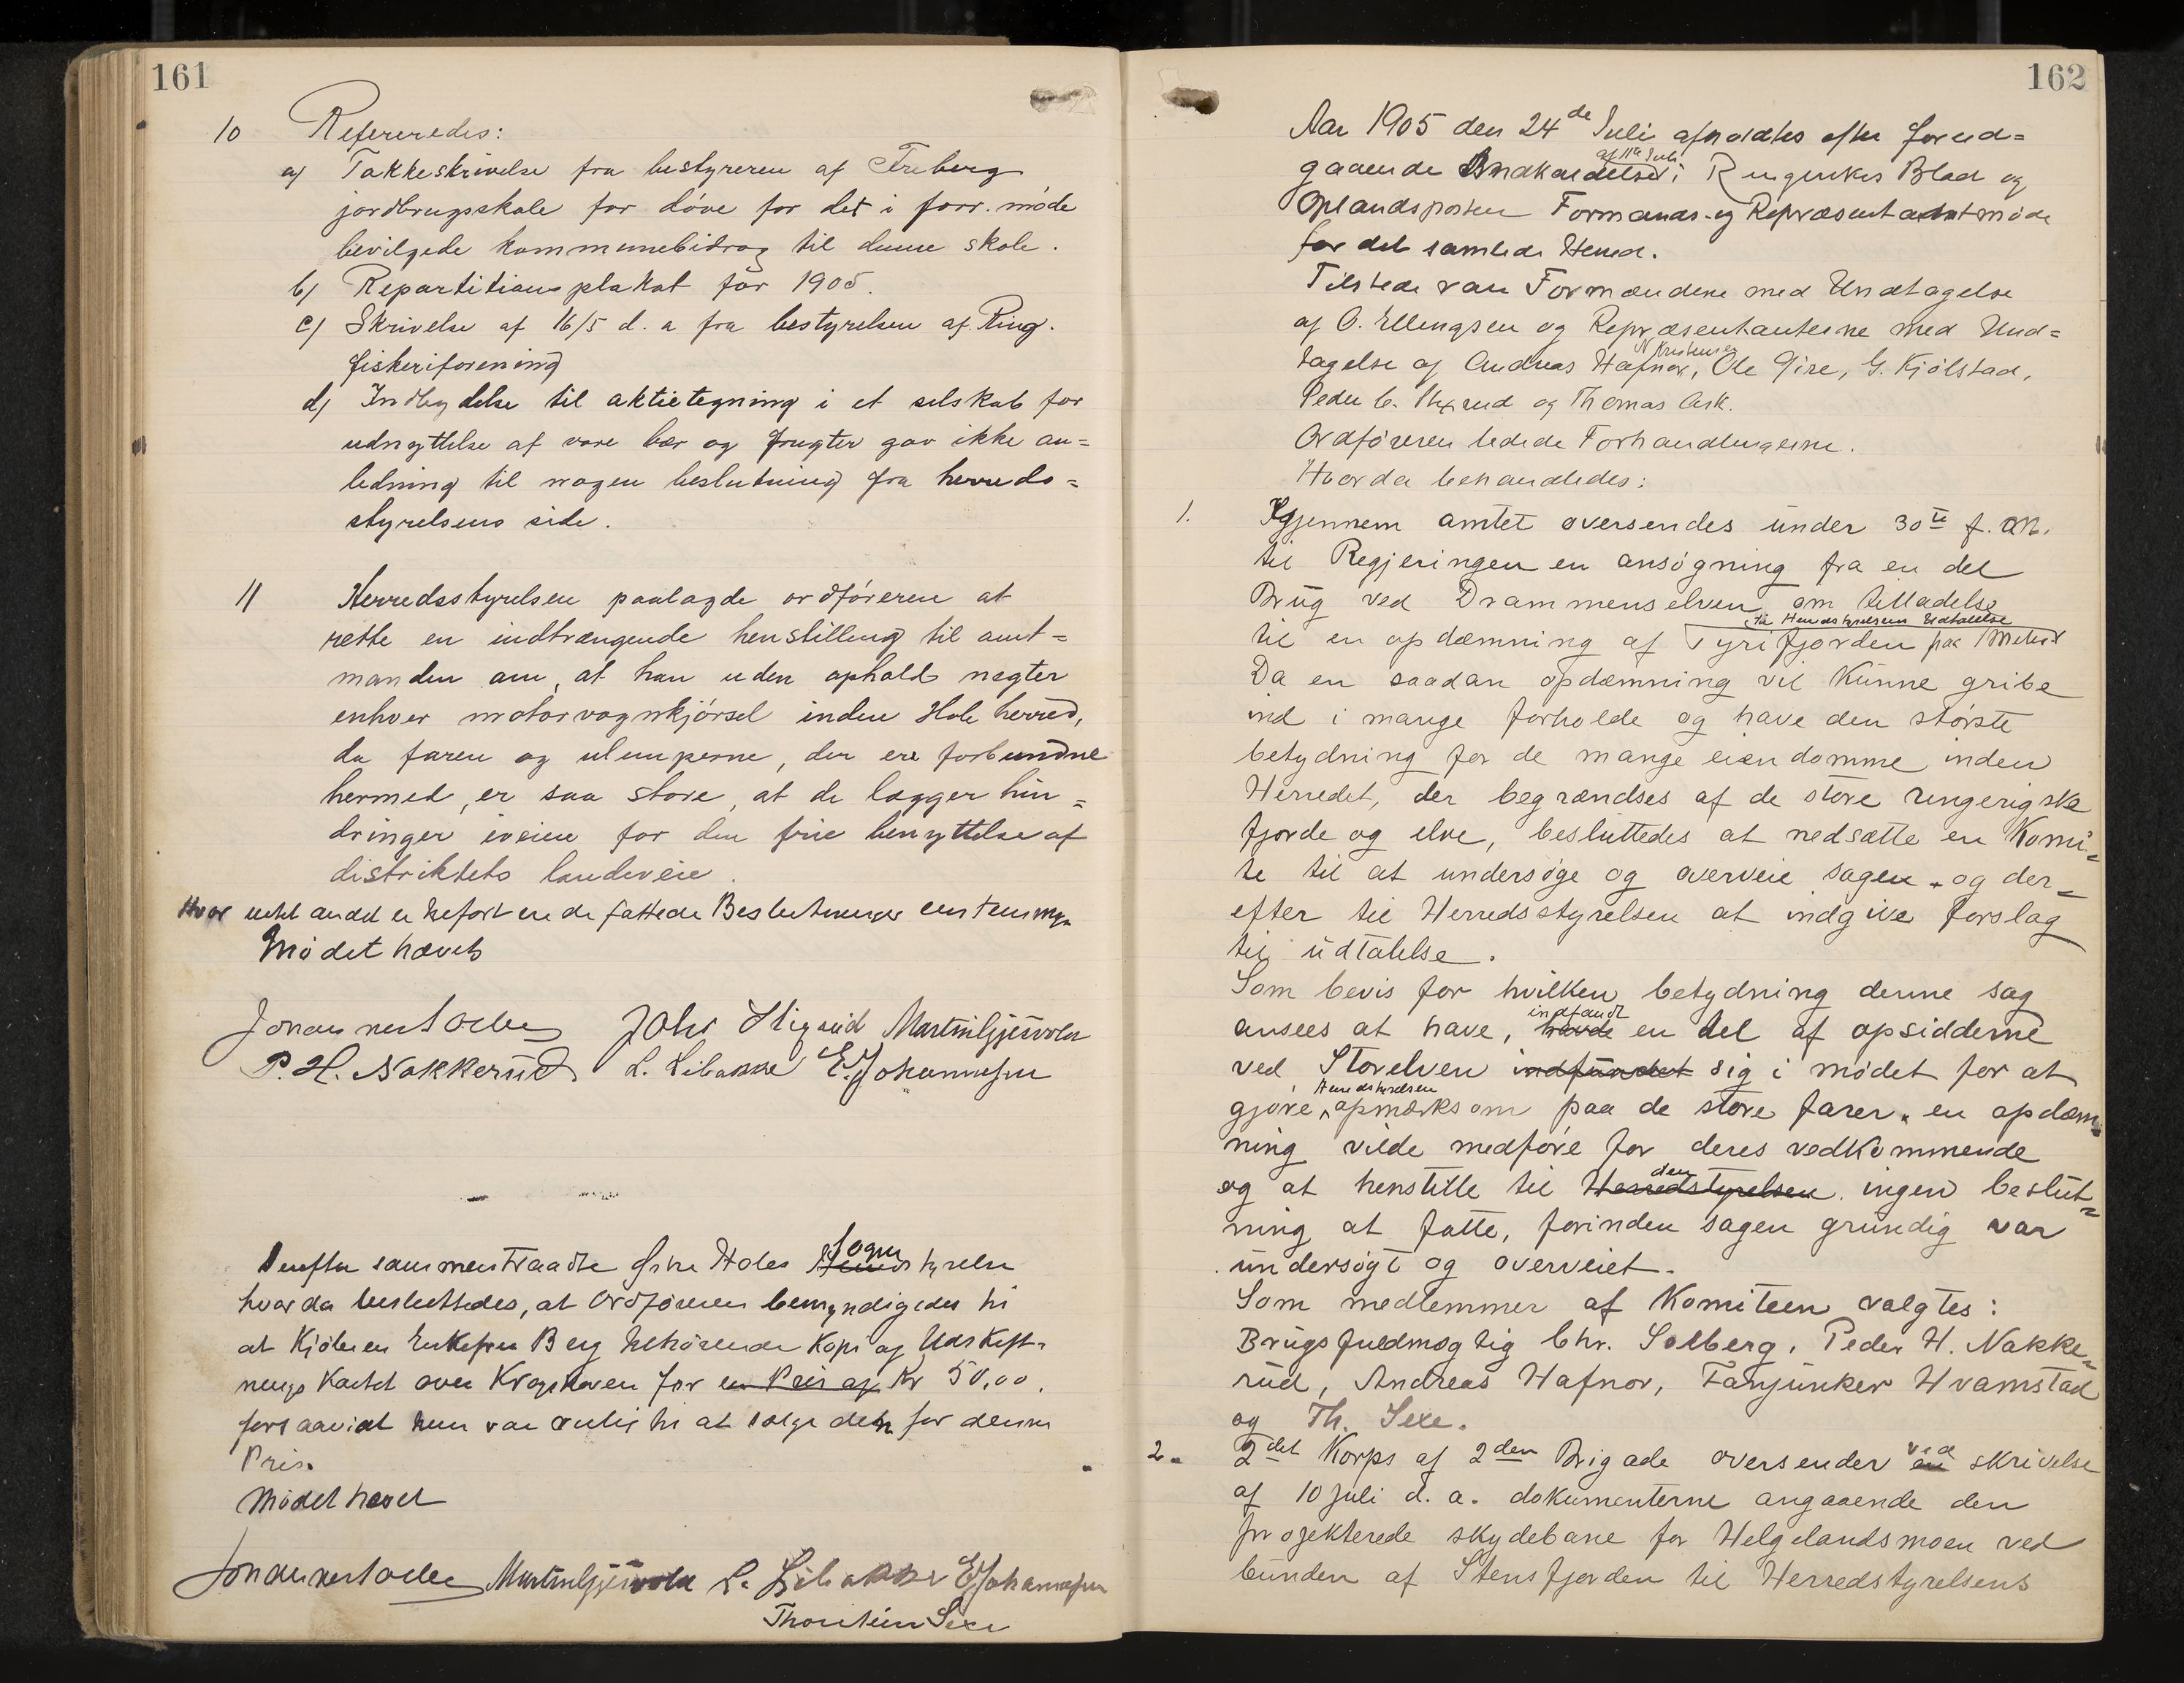 161
10 Refereredes:
a) Takkeskrivelse fra bestyreren af Treberg
jordbrugsskole for døve for det i forr. møde
bevilgede kommunebidrag til denne skole.
b) Repartitionsplakat for 1905.
c) Skrivelse af 16/5 d. a fra bestyrelsen af Ring.
fiskeriforening
d) Indbydelse til aktietegning i et selskab for
udnyttelse af vore bær og frugter gav ikke an=
ledning til nogen beslutning fra herreds=
styrelsens side.
11 Herredsstyrelsen paalagde ordføreren at
rette en indtrængende henstilling til amt=
manden om, at han uden ophold negter
enhver motorvognkjørsel inden Hole herred,
da faren og ulemperne, der ere forbundne
hermed, er saa store, at de lægger hin=
dringer iveien for den frie benyttelse af
distriktets landeveie.
Hvor intet andet er tilført ere de fattede Beslutninger enstemmige
Mødet hævet
John Stigsrud Martin Gjesvold
P. H. Nakkerud L. Libakke E. Johannesen
Derefter sammentraadte Hole Sogne Herredsstyrelse
hvorda besluttedes, at Ordføreren bemyndigedes til
at Kjøbe en Enkefru Berg tilhørende Kopi af Udskift-
nings Kartet over Krogskoven for en Pris af Kr 50,00,
forsaavidt hun var villig til at sælge det for denne
Pris.
Mødet hævet
Martin Gjesvold L. Libakke E Johannesen
Thorstein Sexe
162
Aar 1905 den 24de Juli afholdtes efter forud=
gaaende Indkaldelse af 11te Juli i Ringerikes Blad og
Oplandsposten Formands- og Repræsentantmøde
for det samlede Herred.
Tilstede var Formændene med Undtagelse
af O. Ellingsen og Repræsentanterne med Und=
tagelse af Andreas Hafnor, N Kristensen Ole Gire, G. Kjølstad,
Peder C. og Thomas Ask.
Ordføreren ledede Forhandlingerne.
Hvorda behandledes:
1. Igjennem amtet oversendes under 30te f. M.
til Regjeringen en ansøgning fra en del
Brug ved Drammenselven om tilladelse
til Herredsstyrelsens Udtalelse
til en opdæmning af Tyrifjorden paa 1 Meter
Da en saadan opdæmning vil kunne gribe
ind i mange forholde og have den største
betydning for de mange eiendomme inden
Herredet, der begrændses af de store ringerigske
fjorde og elve, besluttedes at nedsætte en Komi=
te til at undersøge og overveie sagen og der=
efter til Herredsstyrelsen at indgive forslag
til udtalelse.
Som bevis for hvilken betydning denne sag
ansees at have, havde indfandt en del af opsidderne
ved Storelven indfundet sig i mødet for at
gjøre Herredstyrelsen opmærksom paa de store farer, en opdæm=
ning vilde medføre for deres vedkommende
og at henstille til Herredstyrelsen den ingen beslut=
ning at fatte, forinden sagen grundig var
undersøgt og overveiet.
Som medlemmer af Komiteen valgtes:
Brugsfuldmægtig Chr. Solberg, Peder H. Nakke=
rud, Andreas Hafnor, Fanjunker Hvamstad
og Th. Sexe.
2. 2det Korps af 2den Brigade oversender en ved skrivelse
af 10 juli d. a. dokumenterne angaaende den
projekterede skydebane for Helgelandsmoen ved
bunden af Stensfjorden til Herredstyrelsens